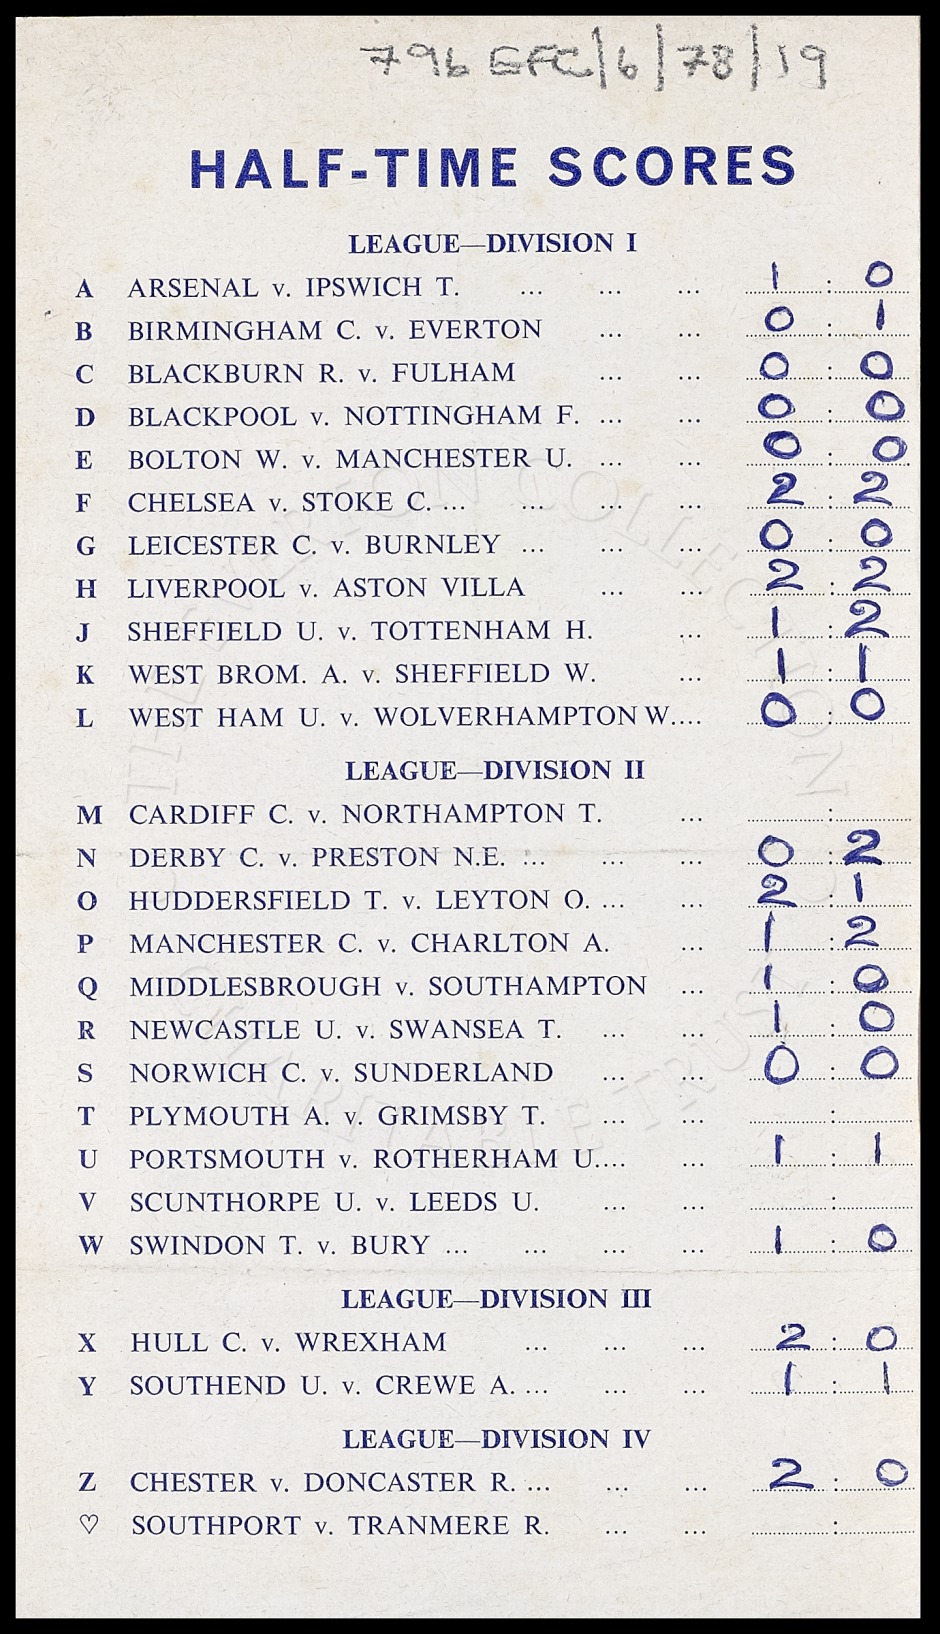 796 EFC/6/78/19
HALF-TIME SCORES
LEAGUE—DIVISION I
A ARSENAL v. IPSWICH T. ... ... ... 1 : 0
B BIRMINGHAM C. v. EVERTON ... ... 0 : 1
C BLACKBURN R. v. FULHAM ... ... 0 : 0
D BLACKPOOL v. NOTTINGHAM F. ... ... 0 : 0
E BOLTON W. v. MANCHESTER U. ... ... 0 : 0
F CHELSEA v. STOKE C. ... ... ... ... 2 : 2
G LEICESTER C. v. BURNLEY ... ... ... 0 : 0
H LIVERPOOL v. ASTON VILLA ... ... 2 : 2
J SHEFFIELD U. v. TOTTENHAM H. ... 1 : 2
K WEST BROM. A. v. SHEFFIELD W. ... 1 : 1
L WEST HAM U. v. WOLVERHAMPTON W.... 0 : 0
LEAGUE—DIVISION II
M CARDIFF C. v. NORTHAMPTON T. ... :
N DERBY C. v. PRESTON N.E. ... ... ... 0 : 2
O HUDDERSFIELD T. v. LEYTON O. ... ... 2 : 1
P MANCHESTER C. v. CHARLTON A. ... 1 : 2
Q MIDDLESBROUGH v. SOUTHAMPTON ... 1 : 0
R NEWCASTLE U. v. SWANSEA T. ... ... 1 : 0
S NORWICH C. v. SUNDERLAND ... ... 0 : 0
T PLYMOUTH A. v. GRIMSBY T. ... ... :
U PORTSMOUTH v. ROTHERHAM U.... ... 1 : 1
V SCUNTHORPE U. v. LEEDS U. ... ... :
W SWINDON T. v. BURY ... ... ... ... 1 : 0
LEAGUE—DIVISION III
X HULL C. v. WREXHAM ... ... ... 2 : 0
Y SOUTHEND U. v. CREWE A. ... ... ... 1 : 1
LEAGUE—DIVISION IV
Z CHESTER v. DONCASTER R. ... ... ... 2 : 0
♡ SOUTHPORT v. TRANMERE R. ... ... :
THE EVERTON COLLECTION
CHARITABLE TRUST